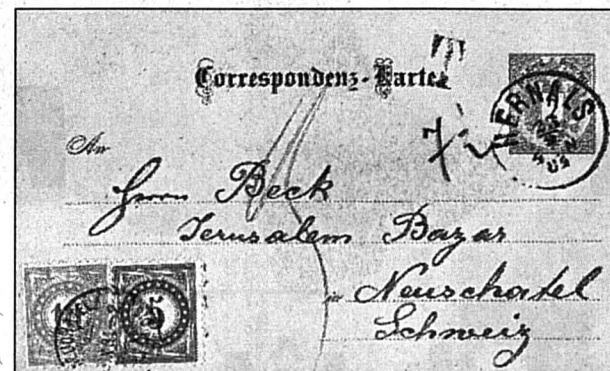 Correspondenz-Karte
T
HERNALS
7½
An
Herrn Beck
Jerusalem Bazar
in Neuschatel
Schweiz
1 5